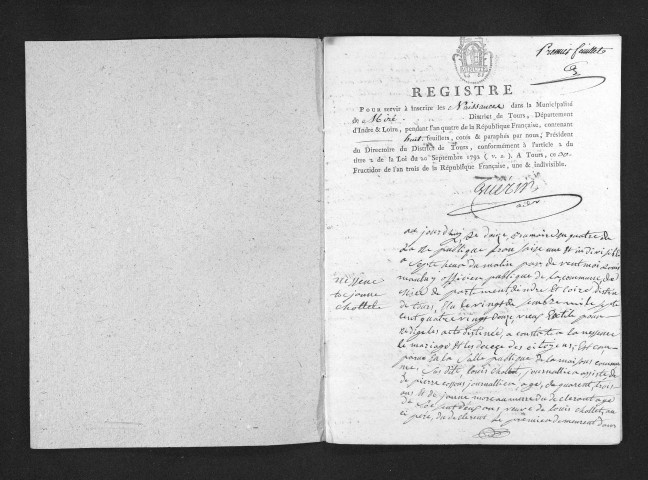 Premier feuillet
REGISTRE
Pour servir à inscrire les Naissances dans la Municipalité
de Miré District de Tours, Département
d'Indre & Loire, pendant l'an quatre de la République Française, contenant
huit feuillets, cotés & paraphés par nous, Président
du Directoire du District de Tours, conformément à l'article 2 du
titre 2 de la Loi du 20 Septembre 1792 (v. s.). A Tours, ce
Fructidor de l'an trois de la République Française, une & indivisible.
Guérin
aujourdhuy le douze an quatre de
la Re publique francaise une Et in divisible
a septe heur du matin par de vent moi
officier publique de la commune de
Miré de partement deindre Et Loire distric
de tours, Elu le vingt de sembre mile sept
cent quatre vingt douze vieux stile pour
redige les acte destinée a constate la nessence
le mariage Et les deces des citoiens, Est com
parue En la salle publique de la maison commu
ne louis chollet journallier assiste de
de pierre journallier age de quarent trois
ans Et de jeanne moreau mere du declarant age
de soisent deux ans, veuve de louis chollet,
pere, du de clarent, premier demeurent dans
nessence
de jeanne
chollet